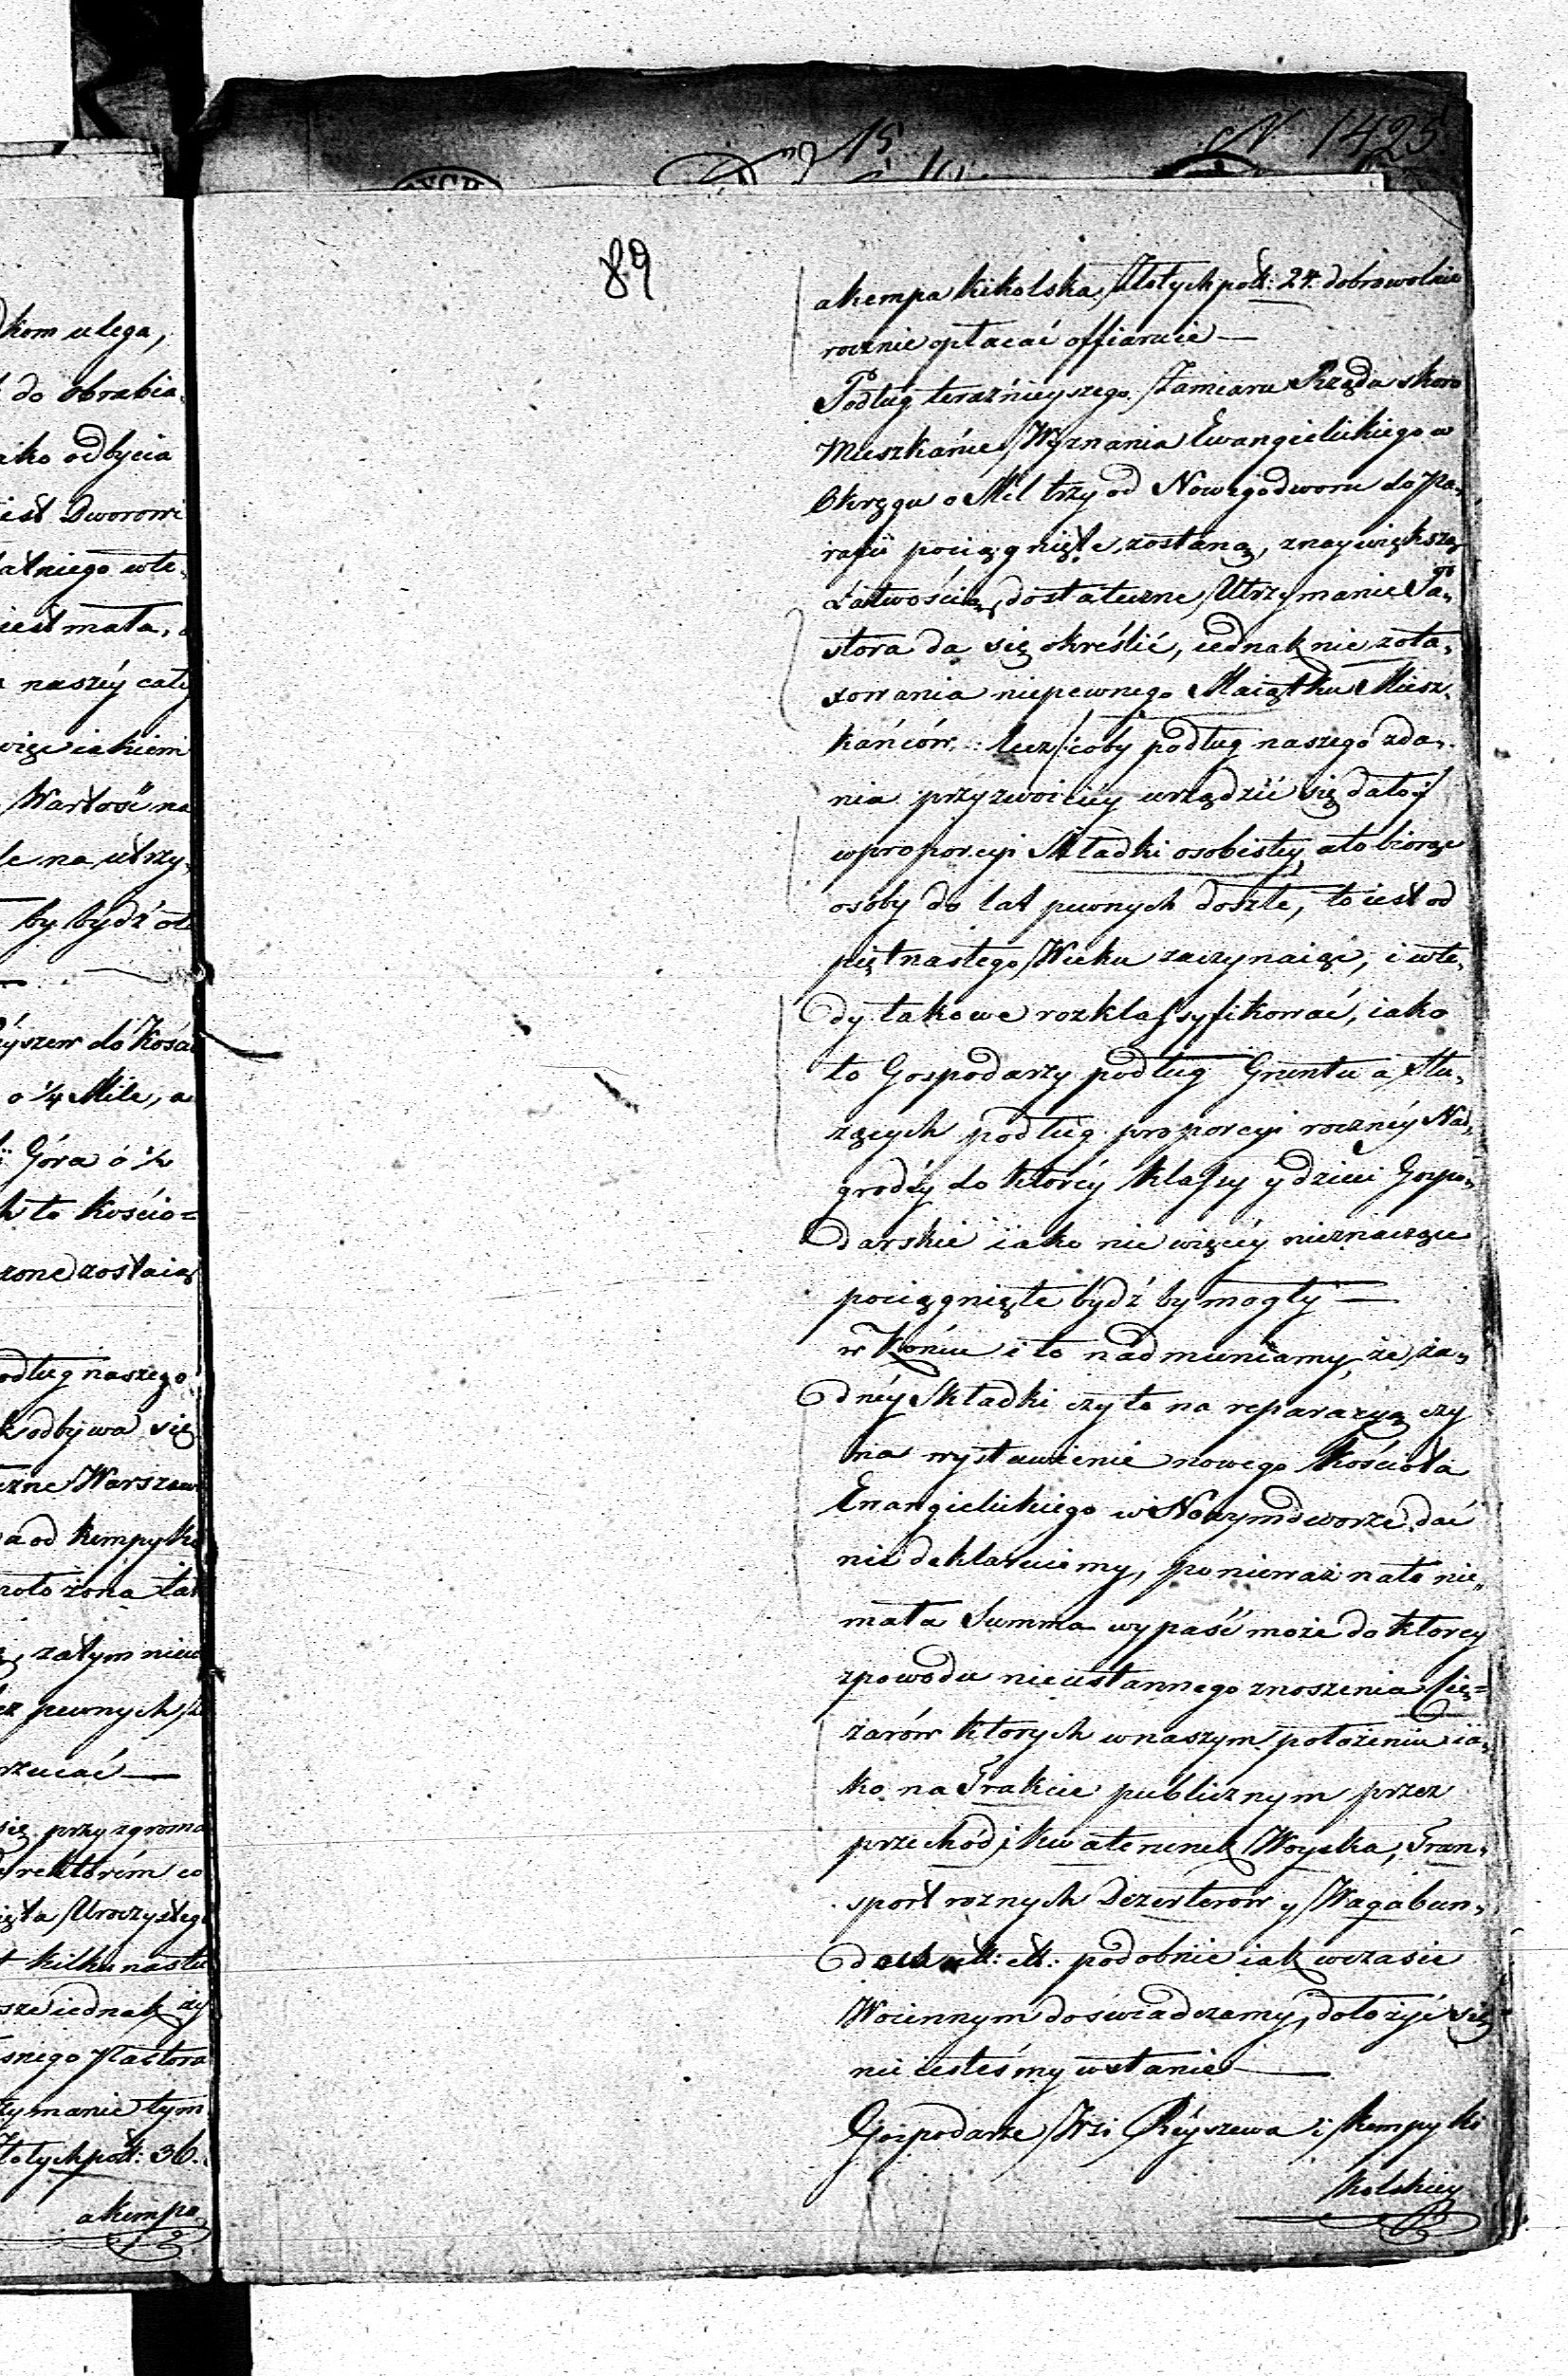 N 1425
15
89
dkom ulega,
do obrabia
ako odbycia
iest Dworowi
atniego wte,
iest mała,
naszéy całey
więc iakiem
Wartość na
le na utrzy,
by bydź
yszew do Kośc
o 1/4 Mile, a
Góra o 1/2
h to kościo=
zone zostaią
odług naszego
odbywa się
czne Warszaw
a od Kempy Ki
położona tak
zatym niew
ez pewnych
rzucać —
się przy zgroma
rektorém co
ięta Uroczystego
kilkunastu
sze iednak
snego Pastora
zymanie tym
Złotych polk: 36.
akempa
akempa Kikolska Złotych polk: 24. dobrowolnie
rocznie opłacać offiaruie —
Podług teraźnieyszego Zamiaru Rządu skoro
Mieszkańce Wyznania Ewangielickiego w
Okręgu o Mil trzy od Nowegodworu do Pa,
rafii pociągnięte zostaną, znaywiększą
Łatwością, dostateczne Utrzymanie Pa,
stora da się określić, iednak nie zota,
xowania niepewnego Maiątku Miesz,
kańców: lecz /: coby podług naszego zda,
nia przyzwoiciey urządzić się dało :/
wproporcyi Składki osobistey, ato biorąc
osoby do lat pewnych doszłe, to iest od
piętnastego Wieku zaczynaiąc, i wte,
dy takowe rozklassyfikować, iako
to Gospodarzy podług Gruntu a słu,
żących podług proporcyi rocznéy Nad,
grody do którey klassy y dzieci Gospo,
darskie iako nie więcéy nieznaczące
pociągnięte bydź by mogły —
w Końcu i to nadmieniamy, że ża,
dnéy Składki czyto na reparacyą czy
na wystawienie nowego Kościoła
Ewangielickiego w Nowymdworze dać
nie deklaruiemy, ponieważ nato nie,
mała Summa wypaść może do ktorey
zpowodu nieustannego znoszenia Cię=
żarów ktorych wnaszym położeniu ia,
ko na Trakcie publicznym przez
przechód i kwaterunek Woyska, Tran,
sport roznych Dezerterow y Wagabun,
dow ett: ett: podobnie iak wczasie
Woiennym doświadczamy, dołożyć się
nie iesteśmy wstanie —
Gospodarze Wsi Ryszewa i Kempy Ki
kolskiey